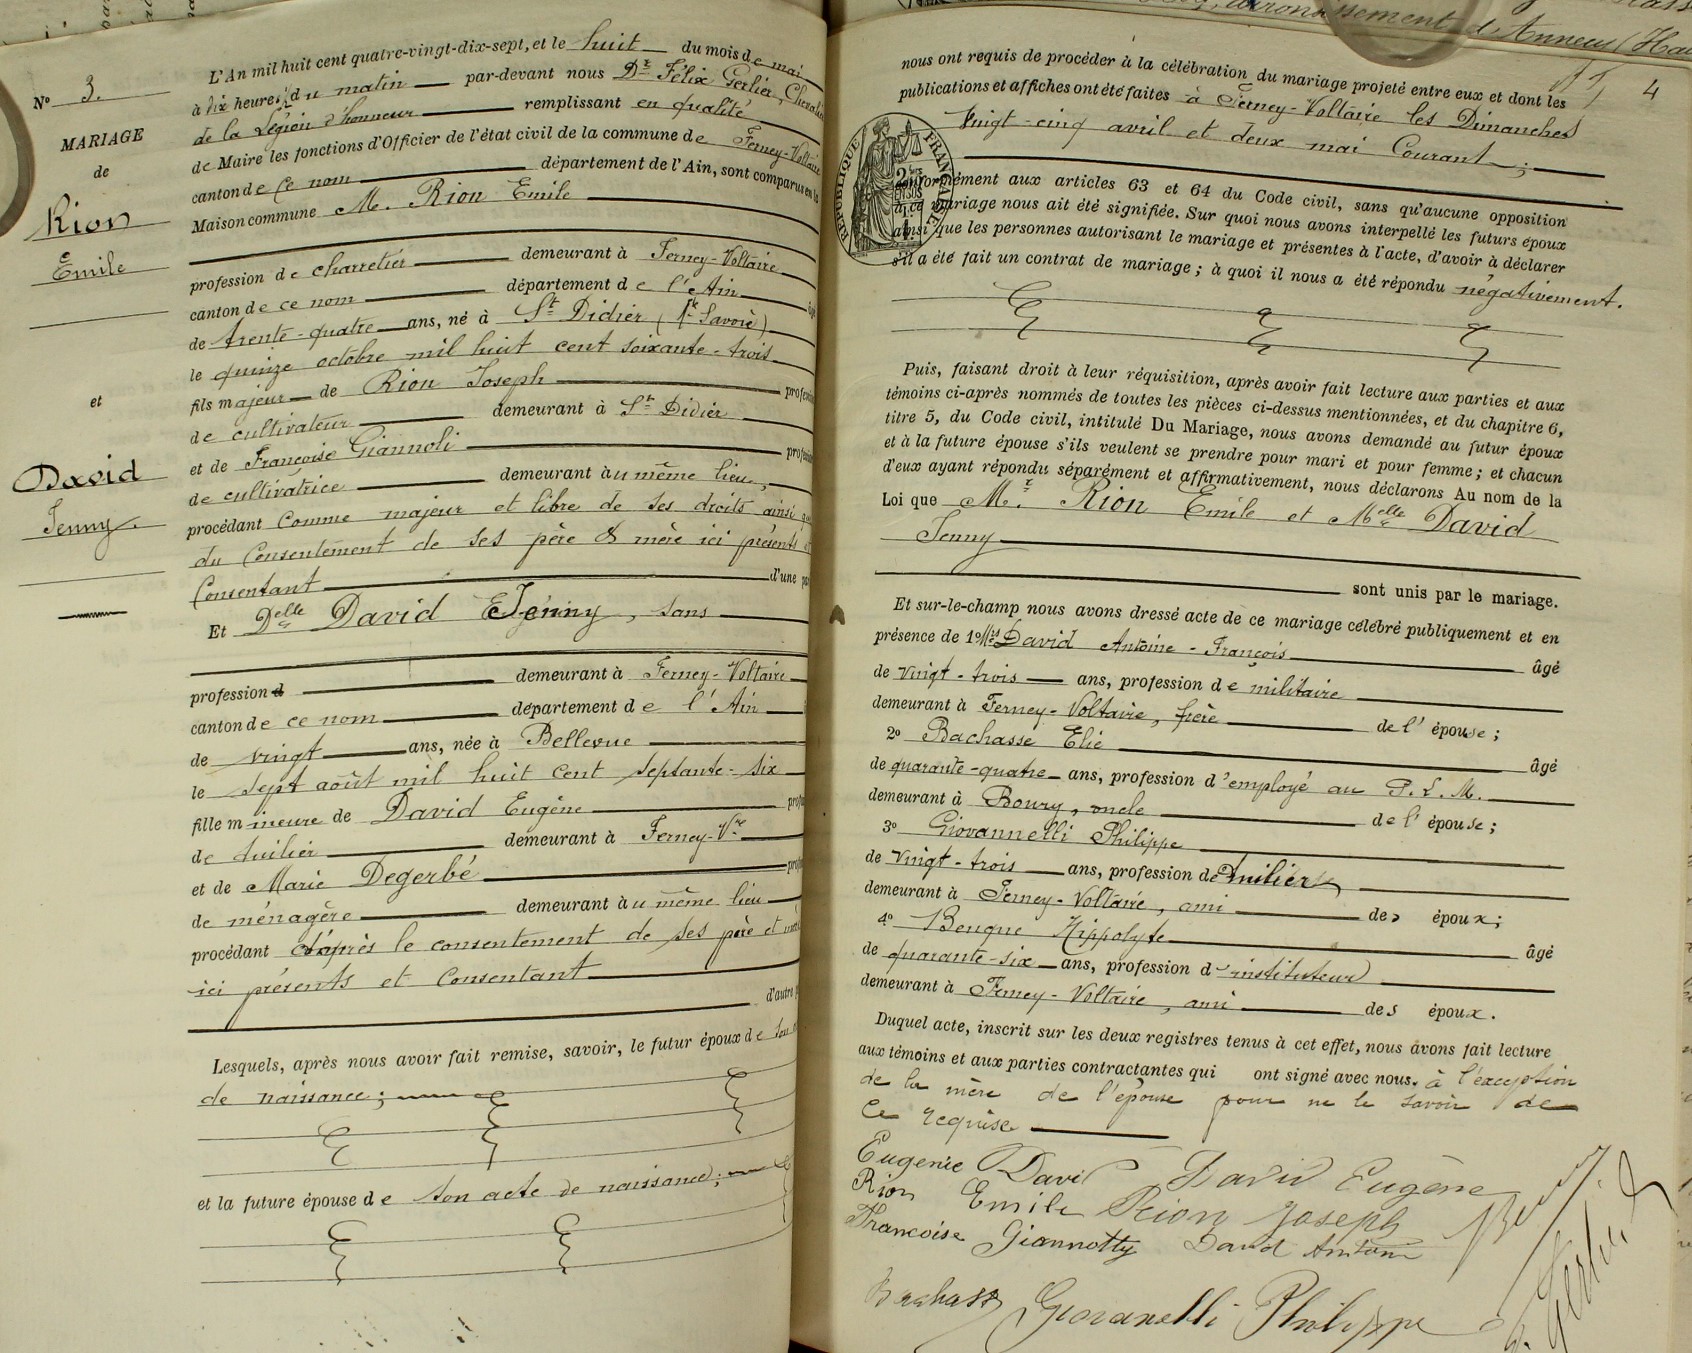 Nº 3.
MARIAGE
de
Rion
Emile
et
David
Jenny.
L'An mil huit cent quatre-vingt-dix-sept, et le huit du mois de mai
à dix heures du matin par-devant nous Dr Félix Gerlier, Chevalier
de la Légion d'honneur remplissant en qualité
de Maire les fonctions d'Officier de l'état civil de la commune de Ferney-Voltaire
canton de ce nom département de l'Ain, sont comparus en la
Maison commune M. Rion Emile
profession de charretier demeurant à Ferney-Voltaire
canton de ce nom département de l'Ain âgé
de trente-quatre ans, né à St Didier (Hte Savoie)
le quinze octobre mil huit cent soixante-trois
fils majeur de Rion Joseph profession
de cultivateur demeurant à St Didier
et de Françoise Giannoli profession
de cultivatrice demeurant au même lieu,
procédant comme majeur et libre de ses droits ainsi que
du Consentement de ses père & mère ici présents et
Consentant d'une part
Et Delle David E Jenny, sans
profession d demeurant à Ferney-Voltaire
canton de ce nom département de l'Ain
de vingt ans, née à Bellevue
le sept août mil huit cent septante-six
fille mineure de David Eugène profession
de tuilier demeurant à Ferney-Vre
et de Marie Degerbé profession
de ménagère demeurant au même lieu
procédant d'après le consentement de ses père et mère
ici présents et Consentant
d'autre part
Lesquels, après nous avoir fait remise, savoir, le futur époux de son
de naissance;
et la future épouse de son acte de naissance;
4
nous ont requis de procéder à la célébration du mariage projeté entre eux et dont les
publications et affiches ont été faites à Ferney-Voltaire les Dimanches
Vingt-cinq avril et deux mai Courant;
RÉPUBLIQUE FRANÇAISE
conformément aux articles 63 et 64 du Code civil, sans qu'aucune opposition
à ce mariage nous ait été signifiée. Sur quoi nous avons interpellé les futurs époux
ainsi que les personnes autorisant le mariage et présentes à l'acte, d'avoir à déclarer
s'il a été fait un contrat de mariage; à quoi il nous a été répondu négativement.
Puis, faisant droit à leur réquisition, après avoir fait lecture aux parties et aux
témoins ci-après nommés de toutes les pièces ci-dessus mentionnées, et du chapitre 6,
titre 5, du Code civil, intitulé Du Mariage, nous avons demandé au futur époux
et à la future épouse s'ils veulent se prendre pour mari et pour femme; et chacun
d'eux ayant répondu séparément et affirmativement, nous déclarons Au nom de la
Loi que Mr. Rion Emile et Melle David
Jenny
sont unis par le mariage.
Et sur-le-champ nous avons dressé acte de ce mariage célébré publiquement et en
présence de 1º Mrs David Antoine-François âgé
de Vingt-trois ans, profession de militaire
demeurant à Ferney-Voltaire, frère de l'épouse;
2º Bachasse Elie âgé
de quarante-quatre ans, profession d'employé au P.L.M.
demeurant à Boury, oncle de l'épouse;
3º Giovannelli Philippe
de Vingt-trois ans, profession de tuilier
demeurant à Ferney-Voltaire, ami des époux;
4º Benque Hippolyte âgé
de quarante-six ans, profession d'instituteur
demeurant à Ferney-Voltaire, ami des époux.
Duquel acte, inscrit sur les deux registres tenus à cet effet, nous avons fait lecture
aux témoins et aux parties contractantes qui ont signé avec nous. à l'exception
de la mère de l'épouse pour ne le savoir de
ce requise
Eugenie David David Eugène
Rion Emile Rion Joseph
Francoise Giannotty David Antoine
Bachasse Giovanelli Philippe